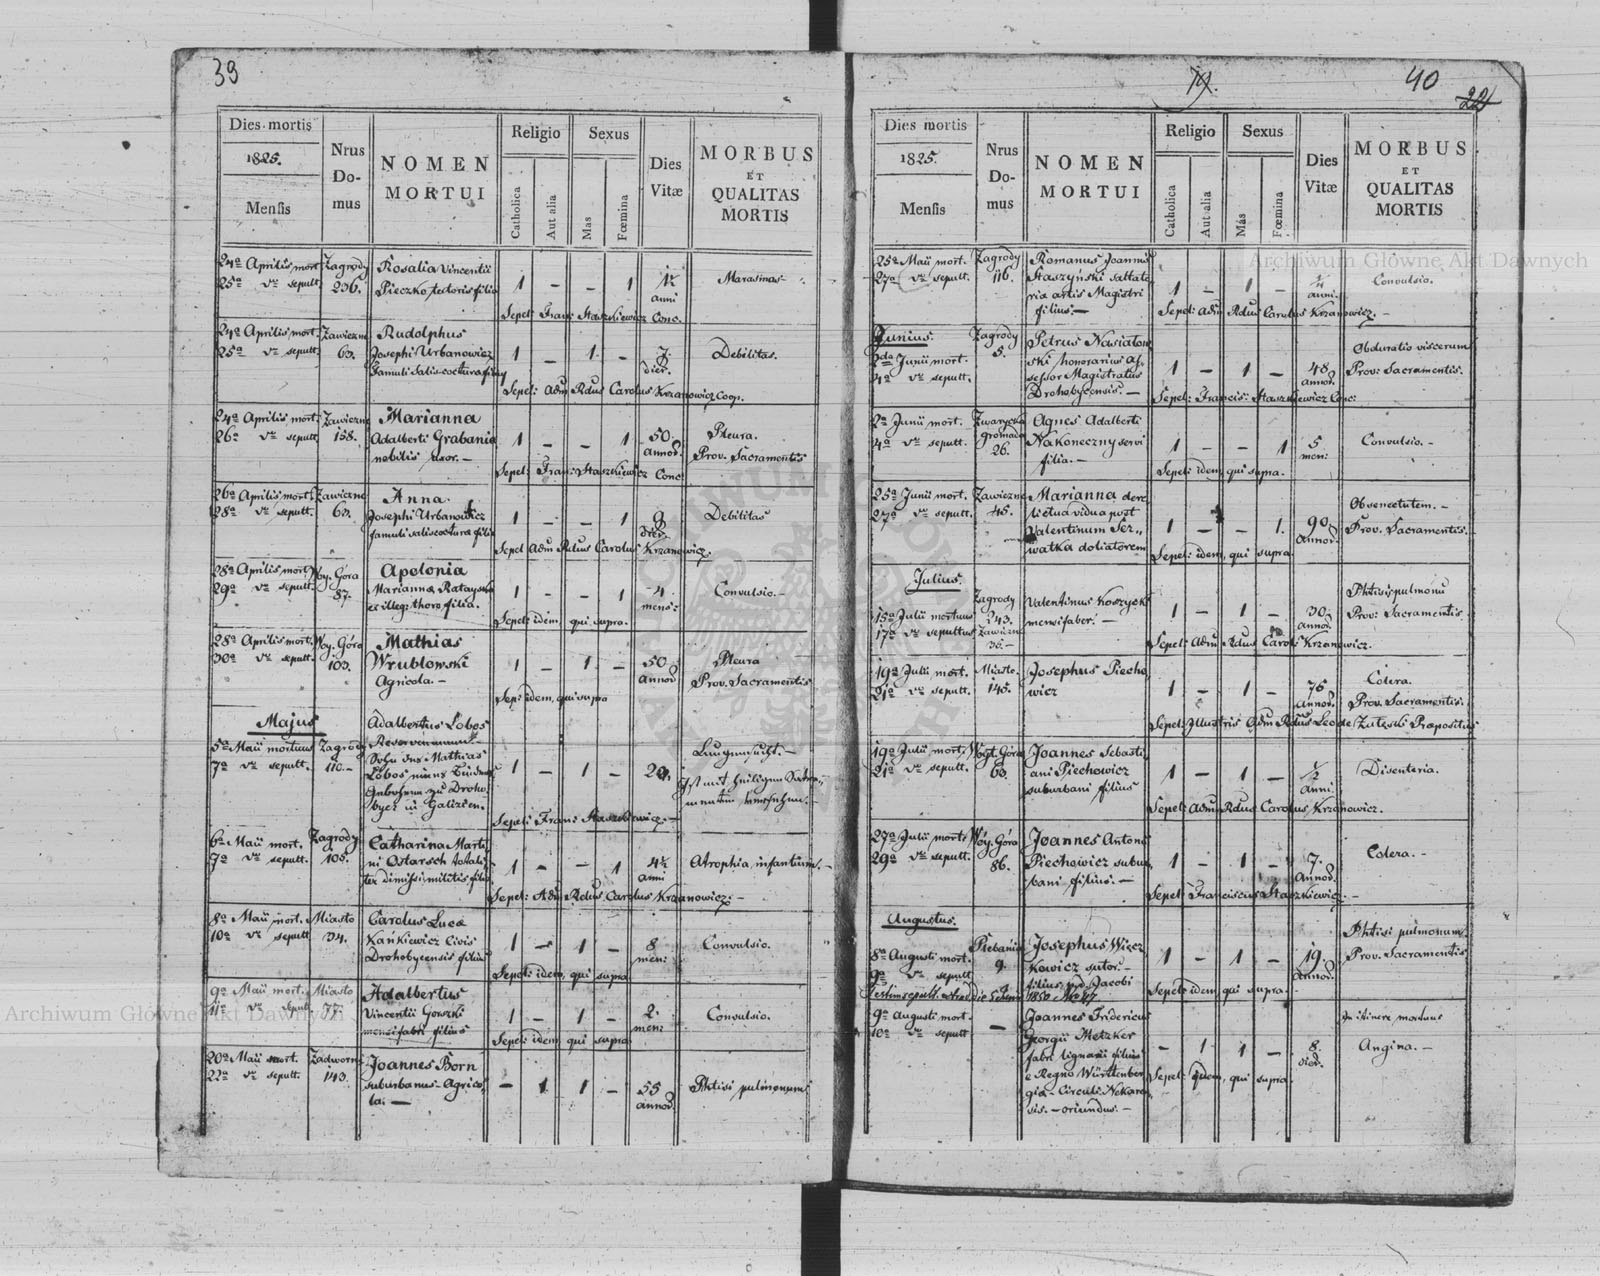 39
Dies mortis
1825.
Mensis
Nrus
Do-
mus
NOMEN
MORTUI
Religio
Catholica
Aut alia
Sexus
Mas
Fœmina
Dies
Vitæ
MORBUS
ET
QUALITAS
MORTIS
24a Aprilis mort. Zagrody Rosalia Vincentii
25a dto sepult. 236. Pieczko tectoris filia 1 – – 1 1½ anni Marasmus
Sepel: Fran: Staszkiewicz Conc.
24a Aprilis mort. Zawiezne Rudolphus
25a dto sepult. 63. Josephi Urbanowicz 1 – 1 – 7 dier. Debilitas.
famuli salis cocturae filius
Sepel: Adm Rdus Carolus Krzanowicz Coop.
24a Aprilis mort. Zawiezne Marianna
26a dto sepult. 158. Adalberti Grabania 1 – – 1 50 annor. Pleura.
nobilis uxor. – Prov. Sacramentis
Sepel: Fran: Staszkiewicz Conc:
26a Aprilis mort. Zawiezne Anna
28a dto sepult. 63. Josephi Urbanowicz 1 – – 1 9 dier. Debilitas
famuli salis cocturae filia
Sepel Adm Rdus Carolus Krzanowicz.
28a Aprilis mort. Woy. Góra Apolonia
29a dto sepult. 87. Marianna Ratayska 1 – – 1 4 mens: Convulsio. –
ex illeg: thoro filia.
Sepel: idem, qui supra.
28a Aprilis mort. Woy. Góra Mathias
30a dto sepult. 103. Wrublowski 1 – 1 – 50 annor Pleura
Agricola. – Prov. Sacramentis
Sep: idem, qui supra
Majus Adalbertus Lobos
5a Maii mortuus Zagrody
7a dto sepult. 110. – Sohn des Mathias
Lobos 1 – 1 – 20.
Gebohren zu Droho-
bycz in Galizien.
Sepel: Fran: Staszkiewicz. –
6a Maii mort. Zagrody Catharina Marti-
7a dto sepult. 105. ni Ostarsch 1 – – 1 4½ anni Atrophia infantum. –
dimissi militis filia
Sepel: Adm Rdus Carolus Krzanowicz. –
8a Maii mort. Miasto Carolus Luca
10a dto sepult 34. Kańkiewicz Civis 1 – 1 – 8 men: Convulsio.
Drohobycensis filius
Sepel: idem, qui supra
9a Maii mort. Miasto Adalbertus
11a dto sepul 77. Vincentii Gorski 1 – 1 – 2. men: Convulsio.
mensifabri filius
Sepel: idem qui supra
20a Maii mort. Zadworne Joannes Born
22a dto sepult. 143. suburbanus Agrico- – 1 1 – 55 annor. Phtisi pulmonum
la. –
79.
40
22
Dies mortis
1825.
Mensis
Nrus
Do-
mus
NOMEN
MORTUI
Religio
Catholica
Aut alia
Sexus
Más
Fœmina
Dies
Vitæ
MORBUS
ET
QUALITAS
MORTIS
25a Maii mort. Zagrody Romanus Joannis
27a dto sepult. 116. Staszyński saltato- 1 – 1 – ¼ anni. Convulsio.
riæ artis Magistri
filius. –
Sepel: Adm Rdus Carolus Krzanowicz. –
Junius. Zagrody Petrus Nasiatow-
2da Junii mort. 5. ski honorarius As- Obduratio viscerum
4a dto sepult. sessor Magistratus 1 – 1 – 48 annor. Prov: Sacramentis.
Drohobycensis. –
Sepel: Francis: Staszkiewicz Conc:
2a Junii mort. Zwarycka Agnes Adalberti
4a dto sepult. gromada Nakoneczny servi 1 – – 1 5 men: Convulsio. –
26. filia. –
Sepel: idem, qui supra.
25a Junii mort. Zawiezne Marianna dere-
27a dto sepult. 45. lictua vidua post Ob senectutem. –
Valentinum Ser- 1 – – 1. 90 annor. Prov. Sacramentis.
watka doliatorem
Sepel: idem, qui supra
Julius.
Zagrody
15a Julii mortuus 343. Valentinus Koszycki Phtisi pulmonu
17a dto sepultus Zawiezne mensifaber. – 1 – 1 – 30 annor Prov: Sacramentis.
36. –
Sepel: Adm Rdus Carols Krzanowicz.
19a Julii mort. Miasto. Josephus Piecho-
21a dto sepult. 145. wicz 1 – 1 – 76 annor. Colera.
Prov. Sacramentis.
Sepel: Illustris Adm Rdus Leo de Załeski Præpositus
19a Julii mort. Woyt. Góra Joannes Sebasti-
21a dto sepult. 60. ani Piechowicz 1 – 1 – ½ anni. Disenteria.
suburbani filius
Sepel: Adm Rdus Carolus Krzanowicz.
27a Julii mort. Wóy. Góra Joannes Antoni
29a dto sepult. 86. Piechowicz subur- 1 – 1 – 7. annor. Colera. –
bani filius. –
Sepel: Franciscus Staszkiewicz. –
Augustus.
8a Augusti mort. Plebania Josephus Więcz- Phtisi pulmonum
9a dto sepult 9. kowicz sutor. – 1 – 1 – 19. annor. Prov. Sacramentis
filius pud Jacobi
Sepel: idem, qui supra.
1850 No 47
9a Augusti mort. Joannes Fridericus In itinere mortuus
10a dto sepult – Georgii Metzker
fabri lignarii filius – 1 1 – 8. dier. Angina. –
e Regno Württenber-
Sepel: idem, qui supra
giæ – Circuli Nekaren-
sis. – oriundus. –
Archiwum Główne Akt Dawnych
Archiwum Główne Akt Dawnych